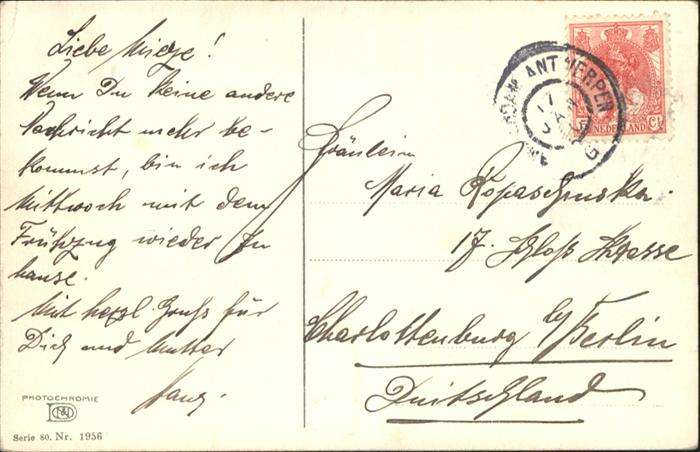 Liebe Mieze!
Wenn Du keine andere
Nachricht mehr be-
kommst, bin ich
Mittwoch mit dem
Frühzug wieder zu
hause.
Mit herzl. Gruß für
Dich und Mutter
Hans.
PHOTOCHROMIE
Serie 80. Nr. 1956
ANTWERPEN
NEDERLAND
5 Ct
Fräulein
Maria
17. Schloß Strasse
Charlottenburg b/Berlin
Duitschland